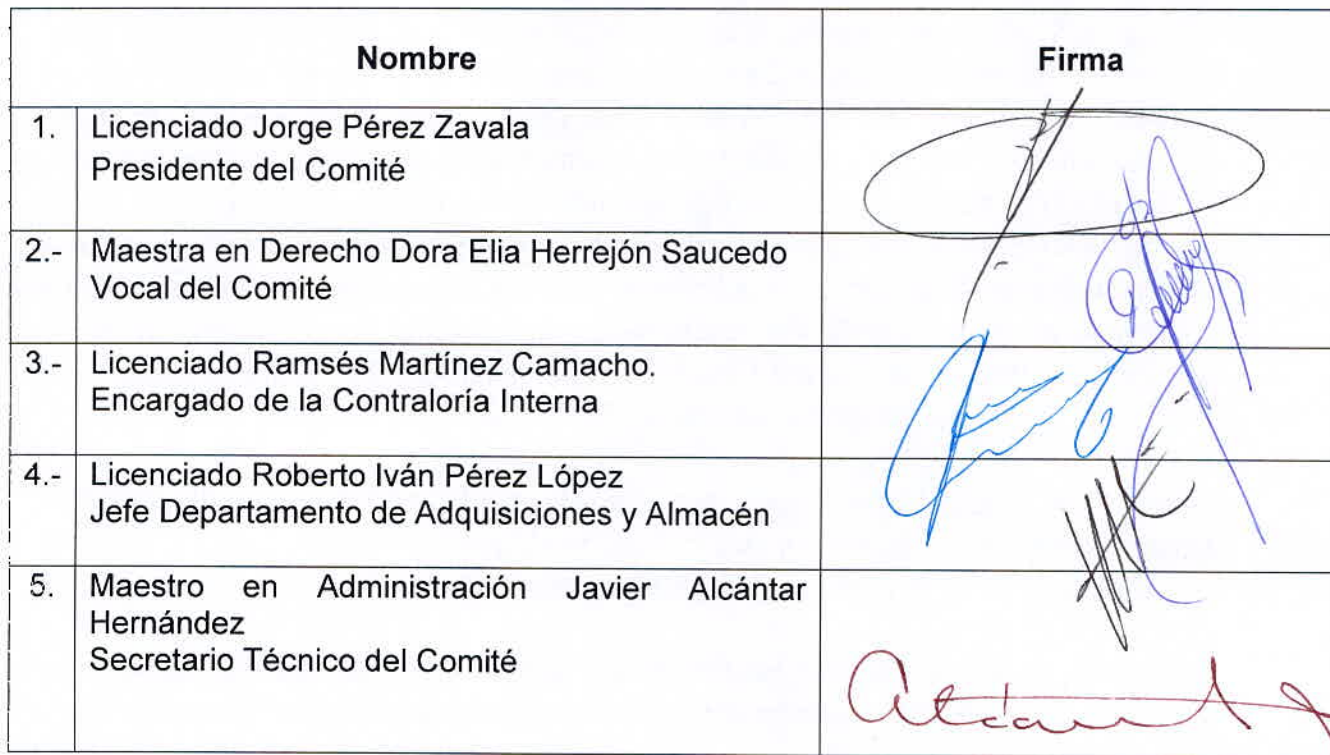 Nombre
Firma
1. Licenciado Jorge Pérez Zavala
Presidente del Comité
2.- Maestra en Derecho Dora Elia Herrejón Saucedo
Vocal del Comité
3.- Licenciado Ramsés Martínez Camacho.
Encargado de la Contraloría Interna
4.- Licenciado Roberto Iván Pérez López
Jefe Departamento de Adquisiciones y Almacén
5. Maestro en Administración Javier Alcántar
Hernández
Secretario Técnico del Comité